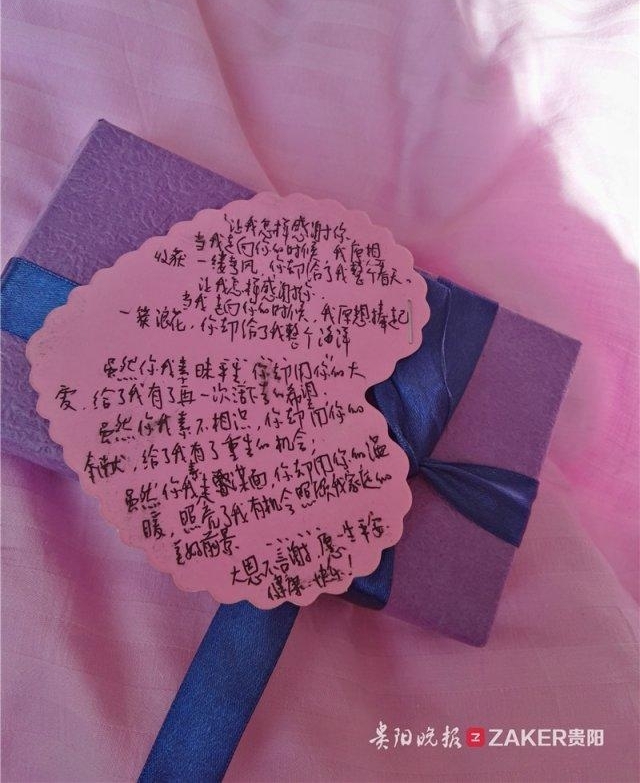 让我怎样感谢你
当我走向你的时候，我原想
收获一缕春风，你却给了我整个春天。
让我怎样感谢你
当我走向你的时候，我原想捧起
一簇浪花，你却给了我整个海洋
虽然你我素昧平生，你却用你的大
爱，给了我有了再一次活下去的希望。
虽然你我素不相识，你却用你的
奉献，给了我有了重生的机会；
虽然你我未曾谋面，你却用你的温
暖，照亮了我有机会照顾我家庭的
美好前景。
大恩不言谢，愿一生平安
健康 快乐！
贵阳晚报 ZAKER贵阳